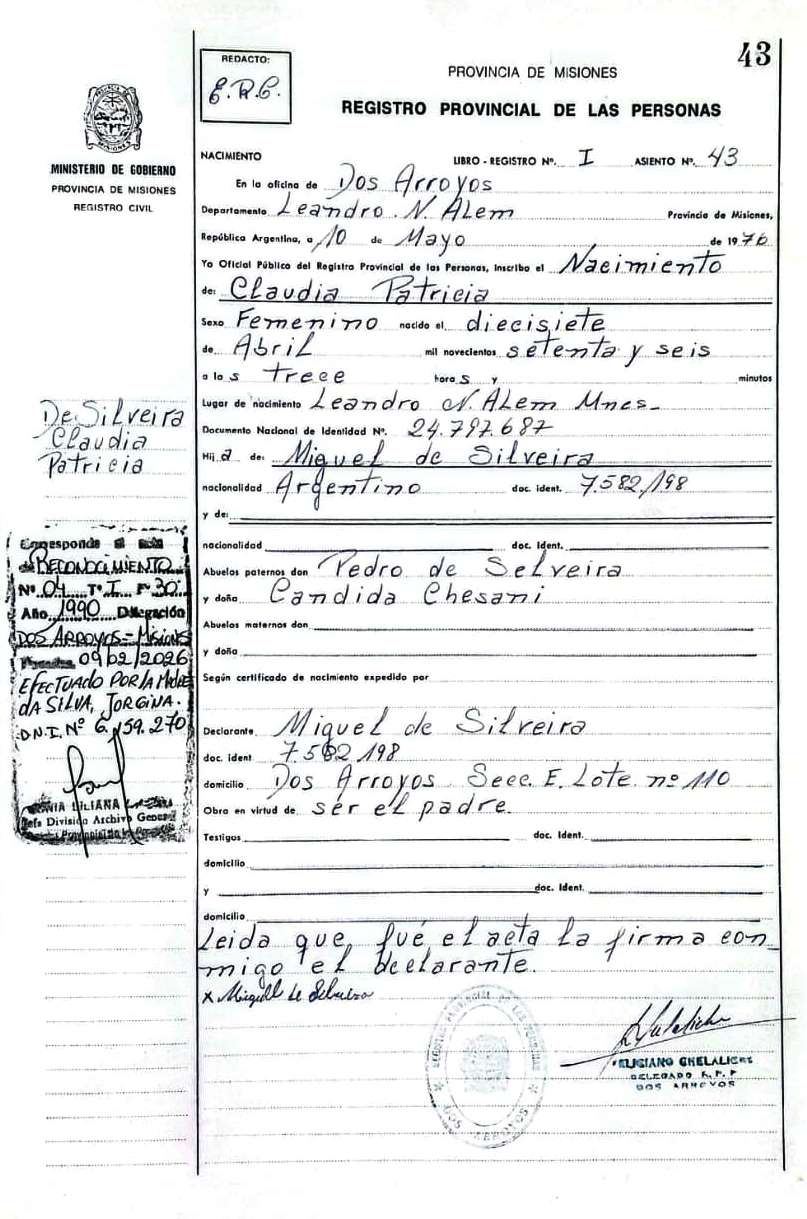 43
REDACTO:
E.R.C.
PROVINCIA DE MISIONES
REGISTRO PROVINCIAL DE LAS PERSONAS
MINISTERIO DE GOBIERNO
PROVINCIA DE MISIONES
REGISTRO CIVIL
NACIMIENTO LIBRO - REGISTRO Nº. I ASIENTO Nº. 43
En la oficina de Dos Arroyos
Departamento Leandro N. ALem Provincia de Misiones,
República Argentina, a 10 de Mayo de 1976
Yo Oficial Público del Registro Provincial de las Personas, inscribo el Nacimiento
de: Claudia Patricia
Sexo Femenino nacido el diecisiete
de Abril mil novecientos setenta y seis
a las trece horas y minutos
Lugar de nacimiento Leandro N. ALem Mnes-
Documento Nacional de Identidad Nº. 24.797.687
Hija de: Miguel de Silveira
nacionalidad Argentino doc. ident. 7.582.198
y de:
nacionalidad doc. ident.
Abuelos paternos don Pedro de Selveira
y doña Candida Chesani
Abuelos maternos don
y doña
Según certificado de nacimiento expedido por
Declarante Miguel de Silveira
doc. ident 7.582.198
domicilio Dos Arroyos Secc. E. Lote. nº 110
Obra en virtud de ser el padre.
Testigos doc. ident.
domicilio
y doc. ident.
domicilio
Leida que fué el acta la firma con
migo el declarante.
x Miguel de Silveira
De Silveira
Claudia
Patricia
Corresponde al acta
de RECONOCIMIENTO
Nº 04 Tº I Fº 30
Año 1990 Delegación
DOS ARROYOS - Misiones
09/02/2026
EFECTUADO POR LA MADRE
DA SILVA, JORGINA.
D.N.I. Nº 6.159.270
LILIANA
Jefa División Archivo General
REGISTRO PROVINCIAL DE LAS PERSONAS
DOS ARROYOS
CHELALICHE
DELEGADO R. P. P
DOS ARROYOS